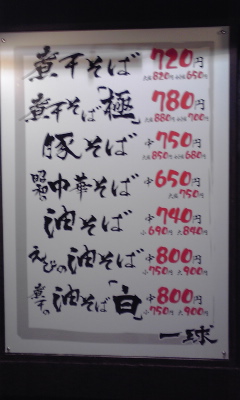 煮干そば 720円
大盛820円 650円
煮干そば「極」 780円
大盛880円 700円
豚そば 中750円
大盛850円 680円
昭和中華そば 中650円
大盛750円
油そば 中740円
小690円 大840円
えびの油そば 中800円
小750円 大900円
煮干の油そば「白」 中800円
小750円 大900円
一球